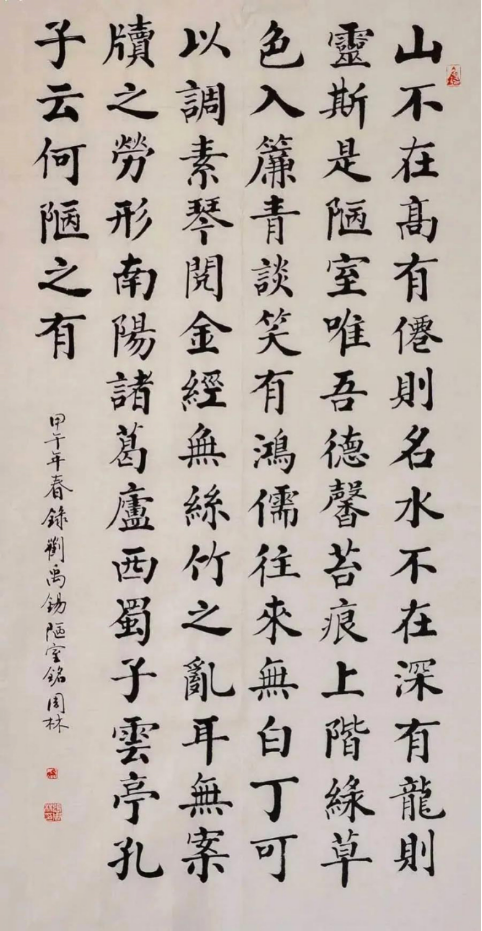 山不在高有僊則名水不在深有龍則
靈斯是陋室唯吾德馨苔痕上階緑草
色入簾青談笑有鴻儒往來無白丁可
以調素琴閱金經無絲竹之亂耳無案
牘之勞形南陽諸葛廬西蜀子雲亭孔
子云何陋之有
甲午年春錄劉禹锡陋室銘周林